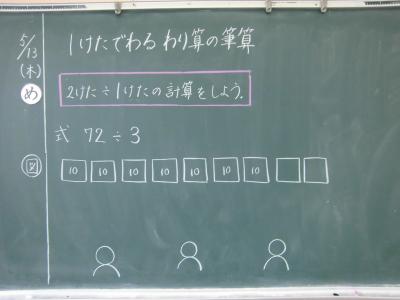 5/13
(木)
1けたでわるわり算の筆算
め
2けた÷1けたの計算をしよう。
式 72÷3
図
10 10 10 10 10 10 10